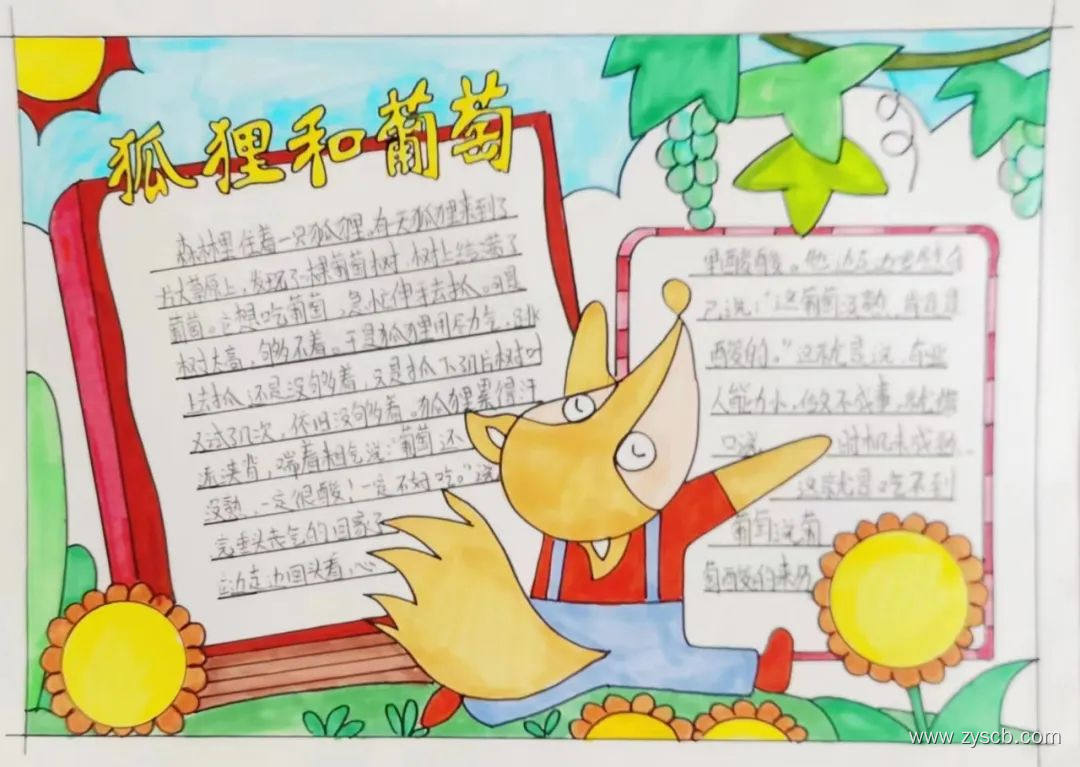 狐狸和葡萄
森林里住着一只狐狸。有一天狐狸来到了
片大草原上,发现了一棵葡萄树,树上结着了
葡萄。它想吃葡萄,急忙伸手去抓。可是
树太高,够不着。于是狐狸用尽力气,跳
上去抓,还是没够着,只是抓下几片树叶
又试了几次,依旧没够着。狐狸累得汗
流浃背,喘着粗气说:“葡萄还
没熟,一定很酸!一定不好吃。”说
完垂头丧气的回家了
它边走边回头看,心
里酸酸。他边走边安慰自
己说:“这葡萄没熟,肯定是
酸的。”这就是说,有些
人能力小,做不成事,就借
口说 时机未成熟
这就是吃不到
葡萄说葡
萄酸的来历
www.zyscb.com